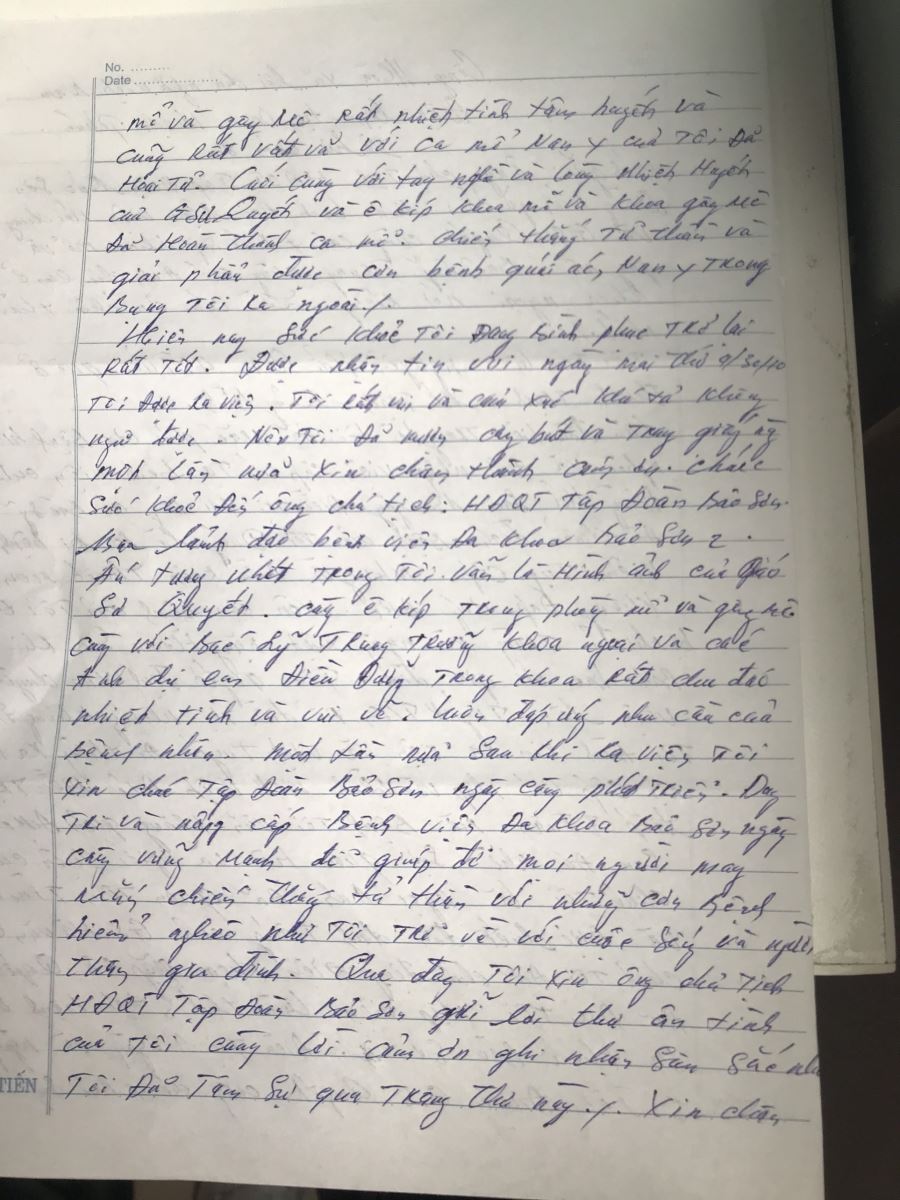 No. .........
Date ...................
mổ và gây Mê Rất nhiệt tình tâm huyết và
cũng Rất vất vả với ca mổ Nan y của Tôi Đã
Hoại Tử. Cuối cùng với tay nghề và lòng Nhiệt Huyết
của GSU Quyết và ê kíp khoa mổ và khoa gây Mê
Đã Hoàn Thành ca mổ. chiến thắng Tử thần và
giải phẫu được căn bệnh quái ác, Nan y Trong
Bụng Tôi Ra ngoài./.
Hiện nay Sức khoẻ Tôi Đang Bình phục Trở lại
Rất Tốt. Được nhận tin vui ngày mai Thứ
Tôi Được Ra viện. Tôi Rất vui và cảm xúc khó tả không
ngủ được. Nên Tôi Đã mượn cây bút và Trang giấy này
một lần nữa xin chân thành cảm ơn. chúc
Sức khoẻ Đến ông chủ tịch: HĐQT Tập Đoàn Bảo Sơn.
Ban lãnh đạo bệnh viện Đa khoa Bảo Sơn 2.
Ấn tượng nhất Trong Tôi vẫn là Hình ảnh của Giáo
Sư Quyết. cùng ê kíp Trong phòng mổ và gây mê
cùng với Bác Sỹ Trung Trưởng khoa ngoại và các
Anh chị em Điều Dưỡng Trong khoa Rất chu đáo
nhiệt tình và vui vẻ. luôn đáp ứng nhu cầu của
Bệnh nhân. một Lần nữa Sau khi Ra viện Tôi
xin chúc Tập Đoàn Bảo Sơn ngày càng phát Triển. Duy
Trì và nâng cấp Bệnh viện Đa khoa Bảo Sơn ngày
càng vững mạnh để giúp đỡ mọi người may
mắn chiến thắng tử thần với những căn Bệnh
hiểm nghèo như Tôi Trở về với cuộc Sống và người
Thân gia đình. Qua đây Tôi xin ông chủ Tịch
HĐQT Tập Đoàn Bảo Sơn ghi lời thư ân tình
của Tôi cùng lời cảm ơn ghi nhận Sâu Sắc như
Tôi Đã Tâm Sự qua Trang Thư này./. Xin chân
TIẾN